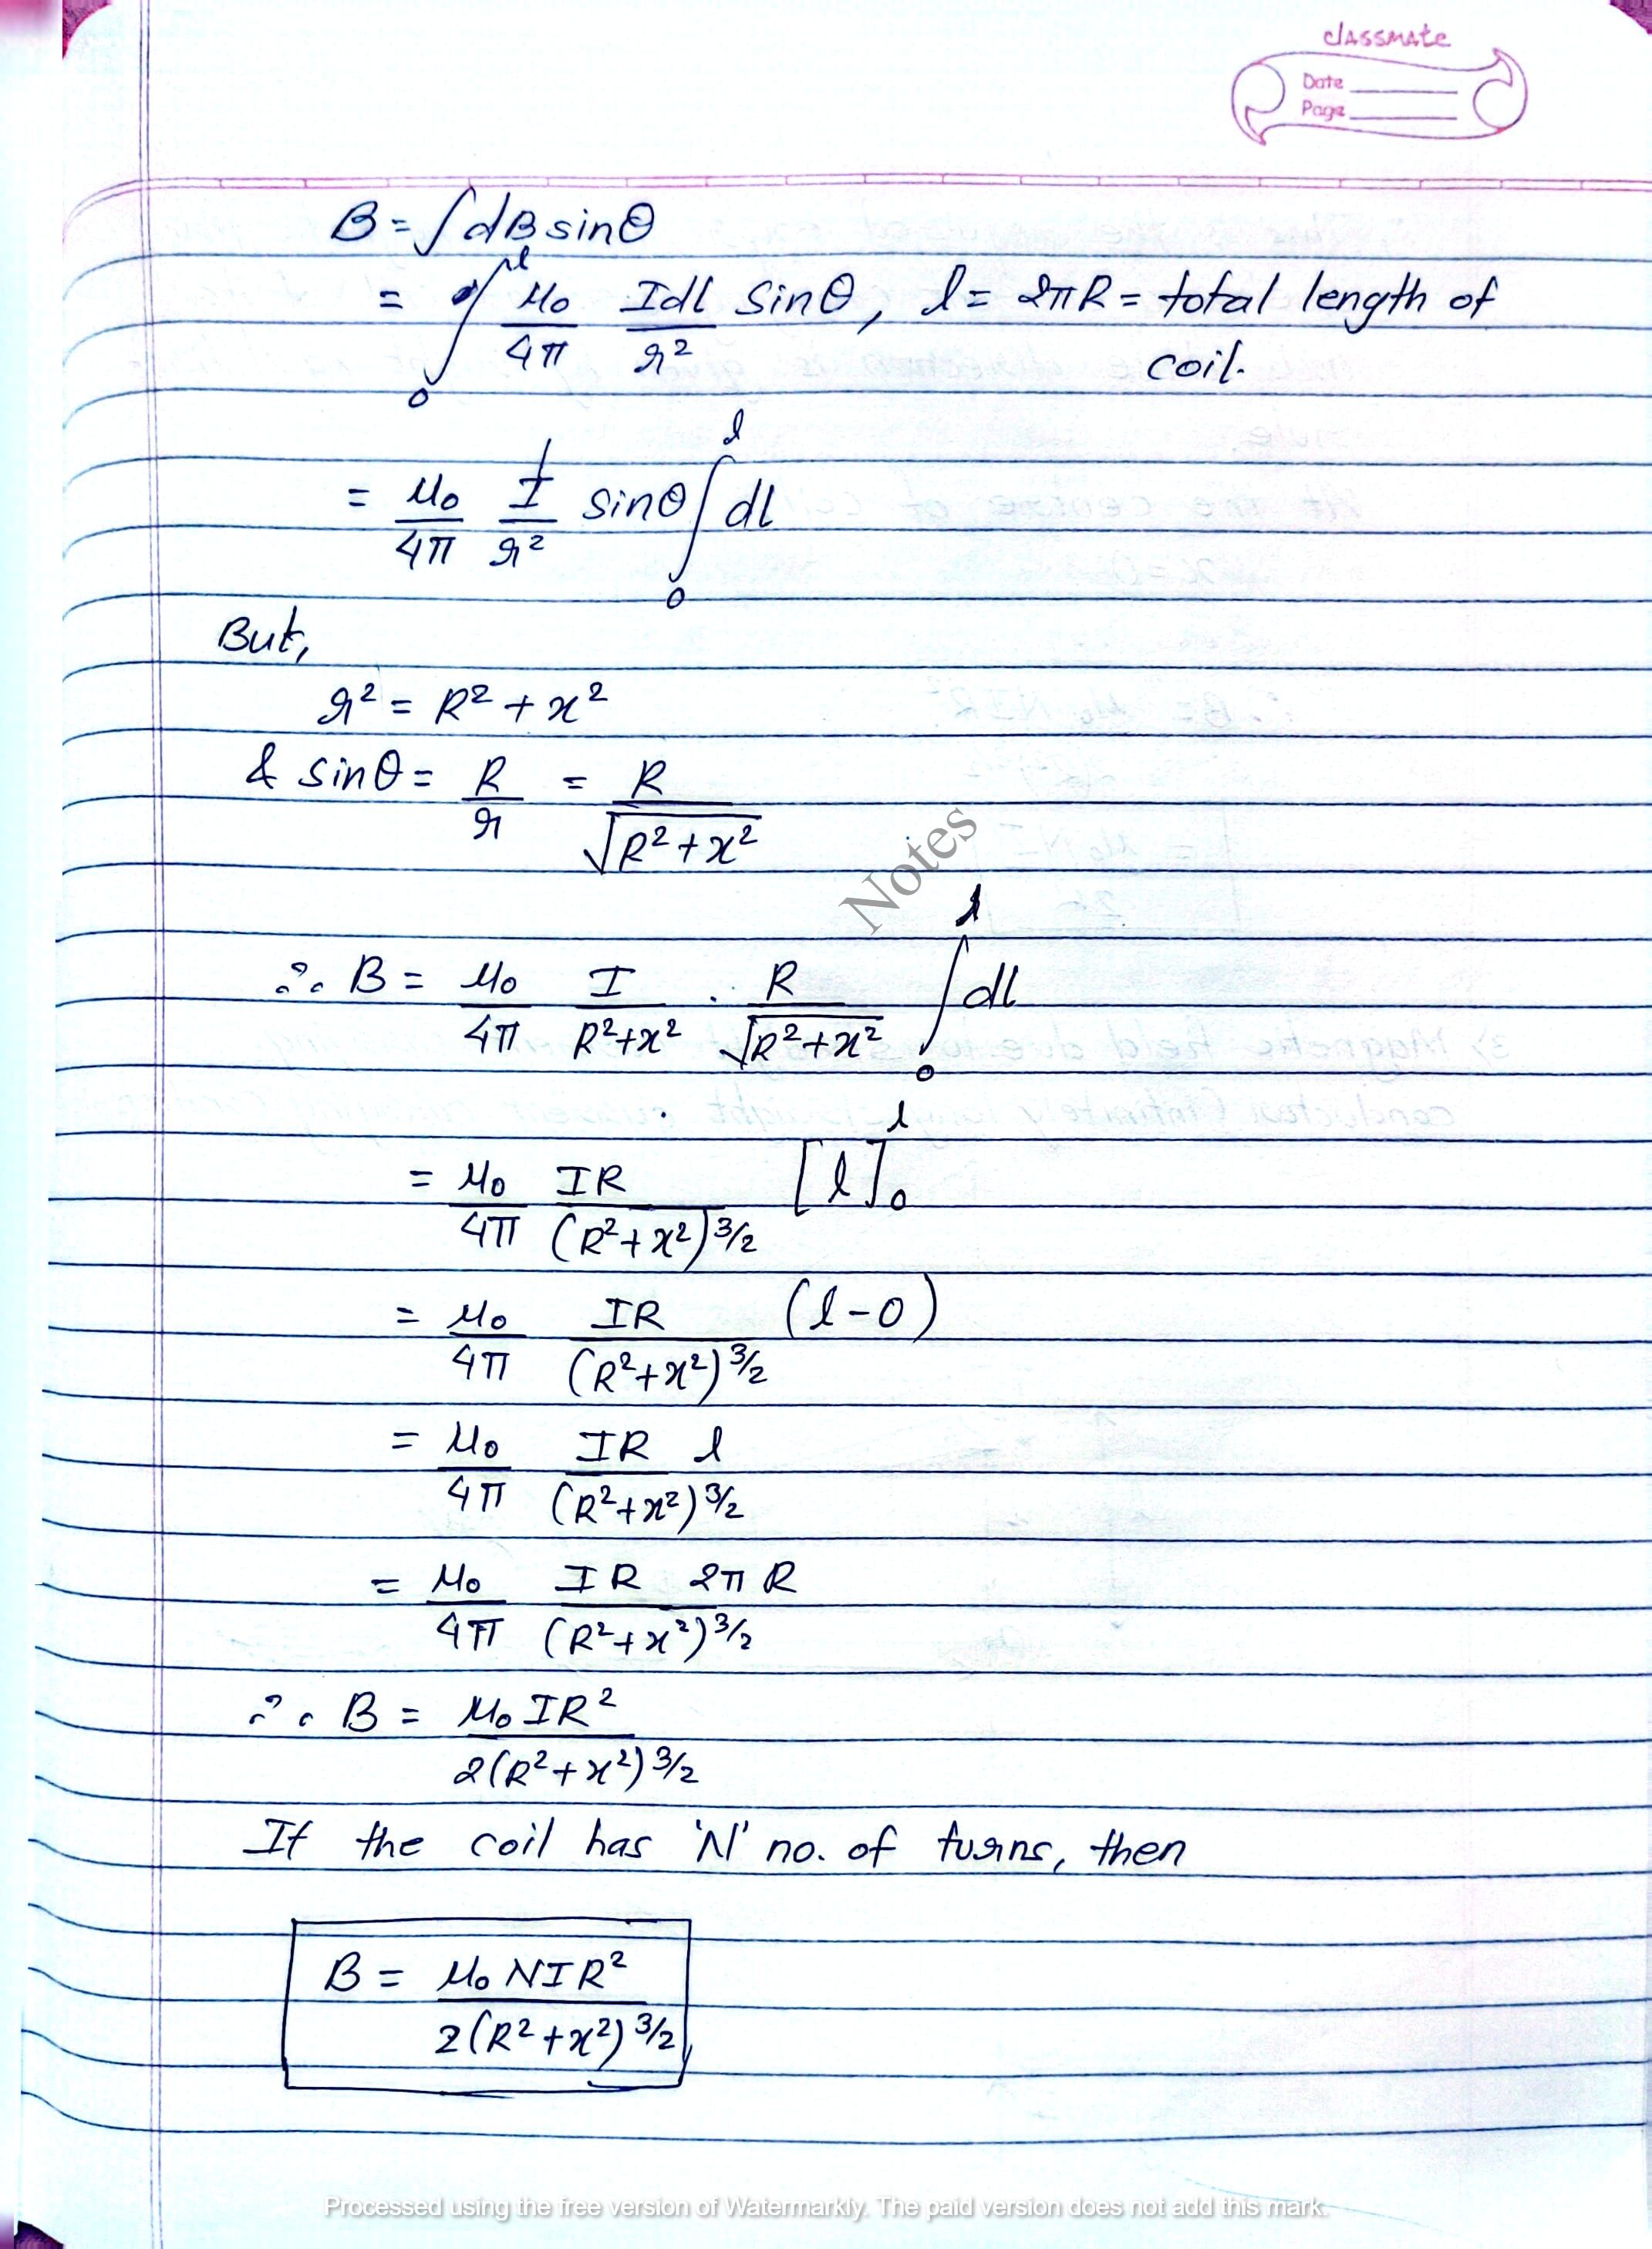 classmate
Date
Page
B = ∫ dB sinθ
= ∫₀ˡ μ₀/4π Idl/r² sinθ, l = 2πR = total length of
coil.
= μ₀/4π I/r² sinθ ∫₀ˡ dl
But,
r² = R² + x²
& sinθ = R/r = R/√(R²+x²)
Notes
∴ B = μ₀/4π I/(R²+x²) · R/√(R²+x²) ∫₀ˡ dl
= μ₀/4π IR/(R²+x²)^3/2 [l]₀ˡ
= μ₀/4π IR/(R²+x²)^3/2 (l-0)
= μ₀/4π IR l/(R²+x²)^3/2
= μ₀/4π IR 2πR/(R²+x²)^3/2
∴ B = μ₀IR²/2(R²+x²)^3/2
If the coil has 'N' no. of turns, then
B = μ₀NIR²/2(R²+x²)^3/2
Processed using the free version of Watermarkly. The paid version does not add this mark.